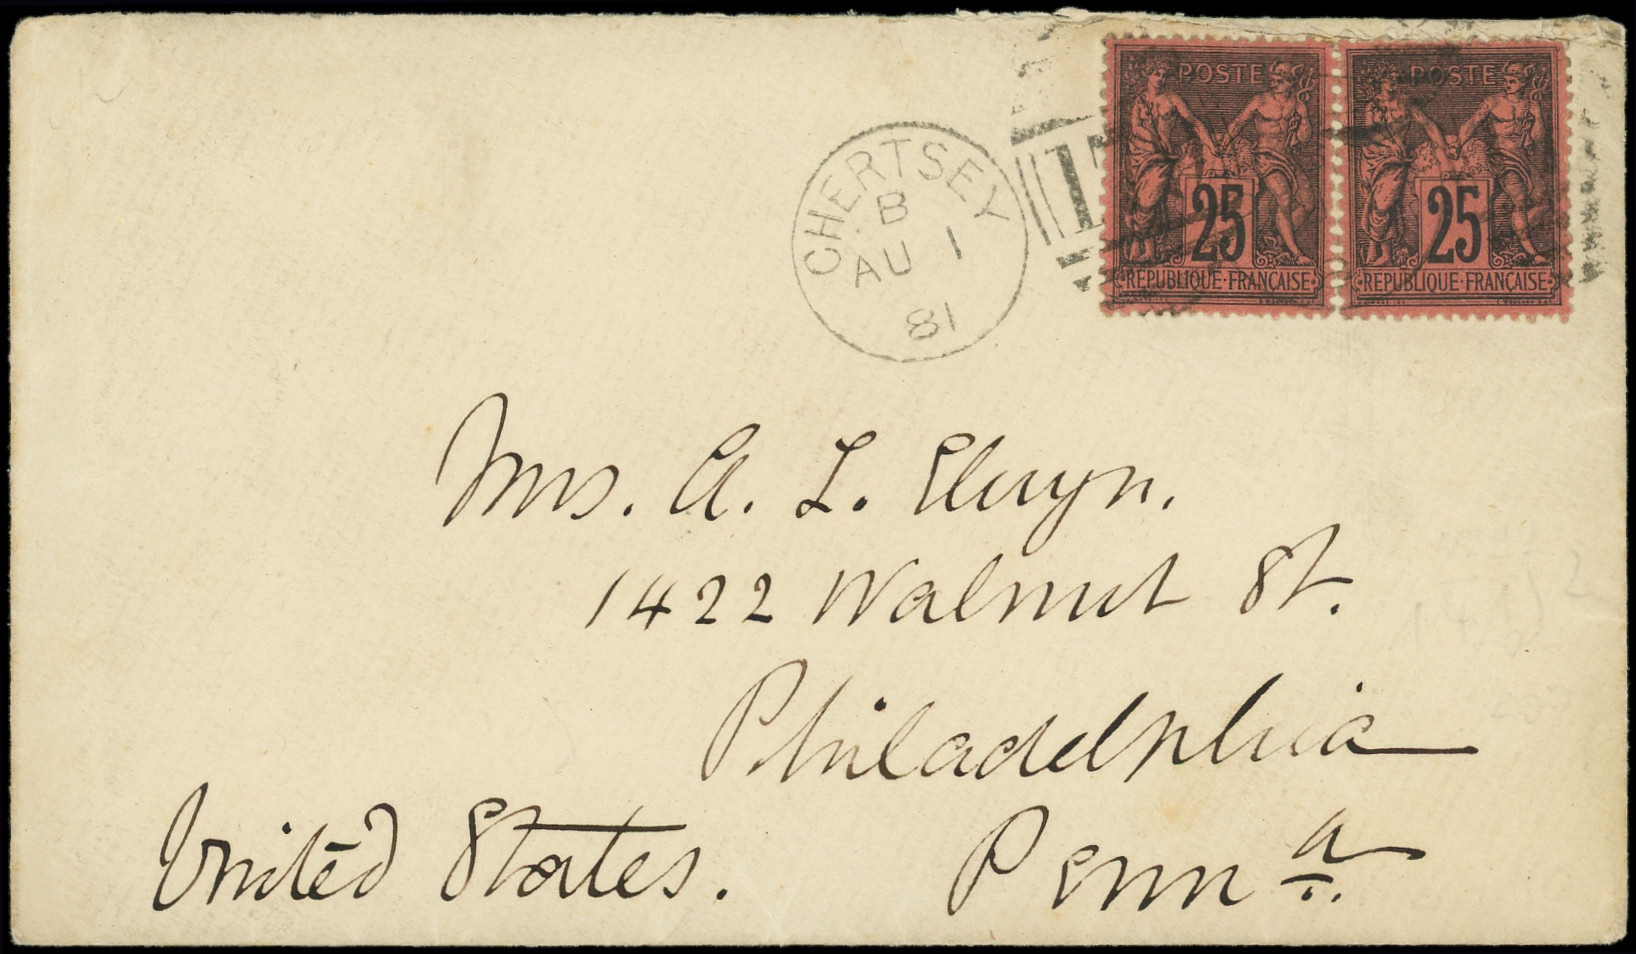 POSTE POSTE
25 25
REPUBLIQUE·FRANÇAISE REPUBLIQUE·FRANÇAISE
CHERTSEY
B
AU 1
81
Mrs. A. L. Elwyn.
1422 Walnut St.
Philadelphia
United States. Penna